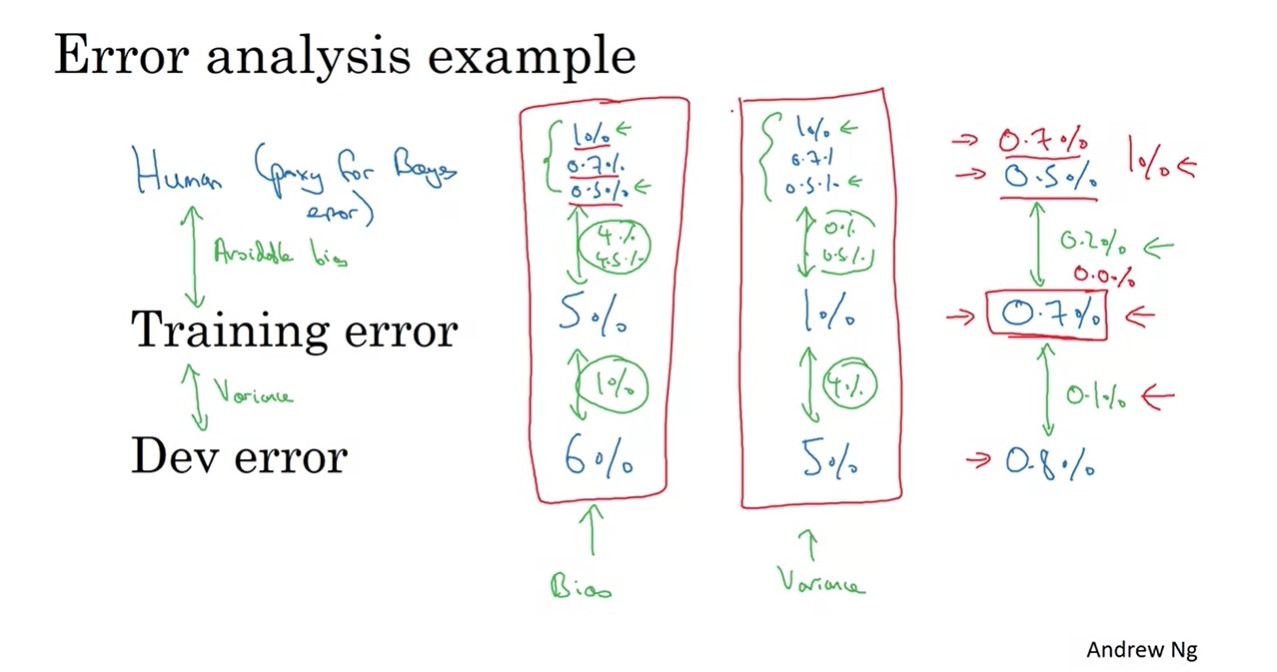 Error analysis example
Human (proxy for Bayes
error)
Avoidable bias
Training error
Variance
Dev error
1%
0.7%
0.5%
4%
4.5%
5%
1%
6%
Bias
1%
0.7%
0.5%
0%
0.5%
1%
4%
5%
Variance
0.7%
1%
0.5%
0.2%
0.0%
0.7%
0.1%
0.8%
Andrew Ng